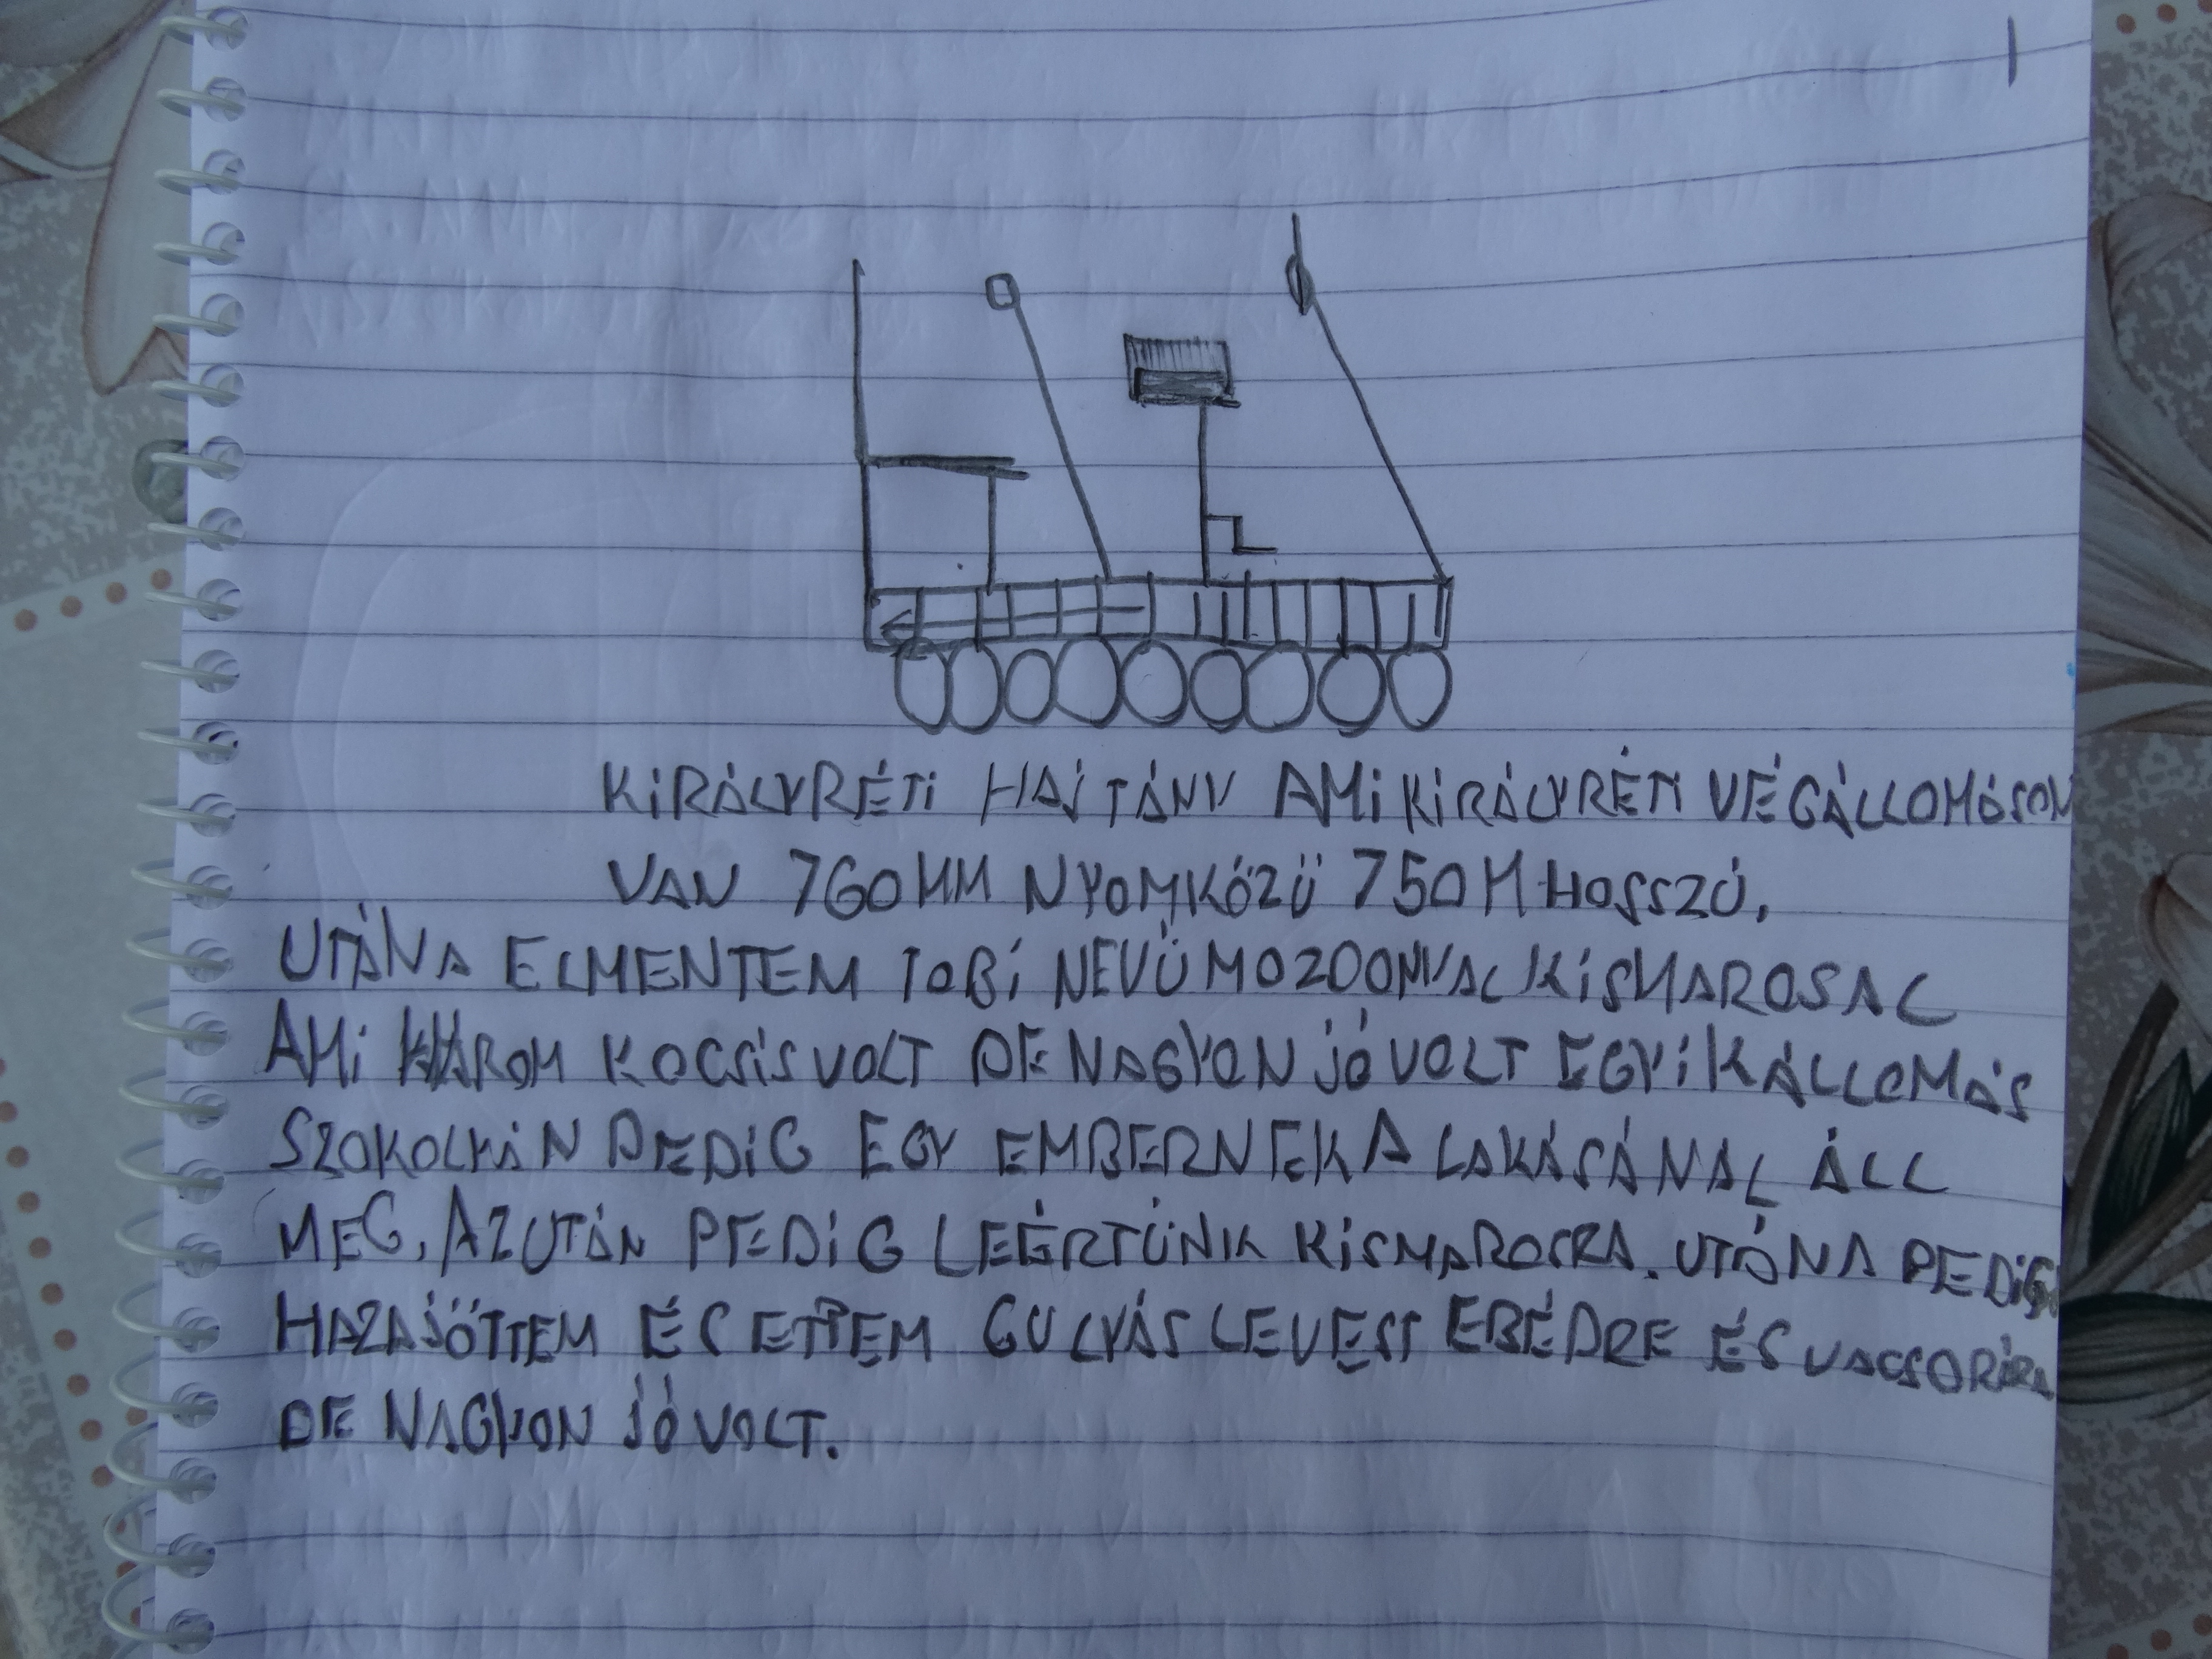 KIRÁLYRÉTI HAJTÁNY AMI KIRÁLYRÉTI VÉGÁLLOMÁSON
VAN 760MM NYOMKÖZÜ 750M HOSSZÚ.
UTÁNA ELMENTEM TOBI NEVÜ MOZDONYAL KISMAROSAL
AMI HÁROM KOCSIS VOLT DE NAGYON JÓ VOLT EGYIK ÁLLOMÁS
SZOKOLYÁN PEDIG EGY EMBERNEK A LAKÁSÁNÁL ÁLL
MEG. AZUTÁN PEDIG LEÉRTÜNK KISMAROSRA. UTÁNA PEDIG
HAZAJÖTTEM ÉS ETTEM GULYÁS LEVEST EBÉDRE ÉS VACSORÁRA
DE NAGYON JÓ VOLT.